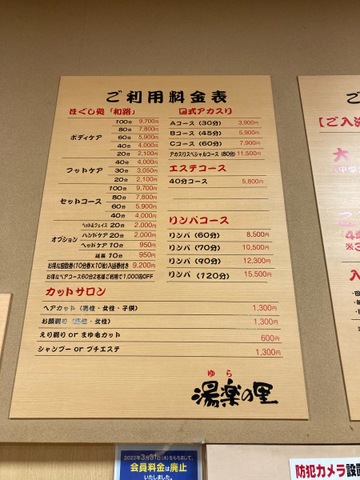 ご利用料金表
ほぐし処「和路」
ボディケア
100分 9,700円
80分 7,800円
60分 5,900円
40分 4,000円
20分 2,100円
フットケア
40分 4,000円
30分 3,050円
20分 2,100円
セットコース
100分 9,700円
80分 7,800円
60分 5,900円
40分 4,000円
オプション
ヘッド&フェイス 20分 2,000円
ハンドケア 20分 2,000円
ヘッドケア 10分 950円
延長 10分 950円
お得な回数券(10分券×10枚)入浴券付き 9,200円
お得なペアコース60分2名様ご利用で1,000円OFF
カットサロン
ヘアカット(男性・女性・子供) 1,300円
お顔剃り(男性・女性) 1,300円
えり剃り or まゆ毛カット 600円
シャンプー or プチエステ 1,300円
式アカスリ
Aコース(30分) 3,900円
Bコース(45分) 5,900円
Cコース(60分) 7,900円
アカスリスペシャルコース(80分) 11,500円
エステコース
40分コース 5,800円
リンパコース
リンパ(60分) 8,500円
リンパ(70分) 10,500円
リンパ(90分) 12,300円
リンパ(120分) 15,500円
ゆら
湯楽の里
【ご入浴
大
入
2022年3月31日(木)をもちまして、
会員料金は廃止
いたしました。
防犯カメラ設置